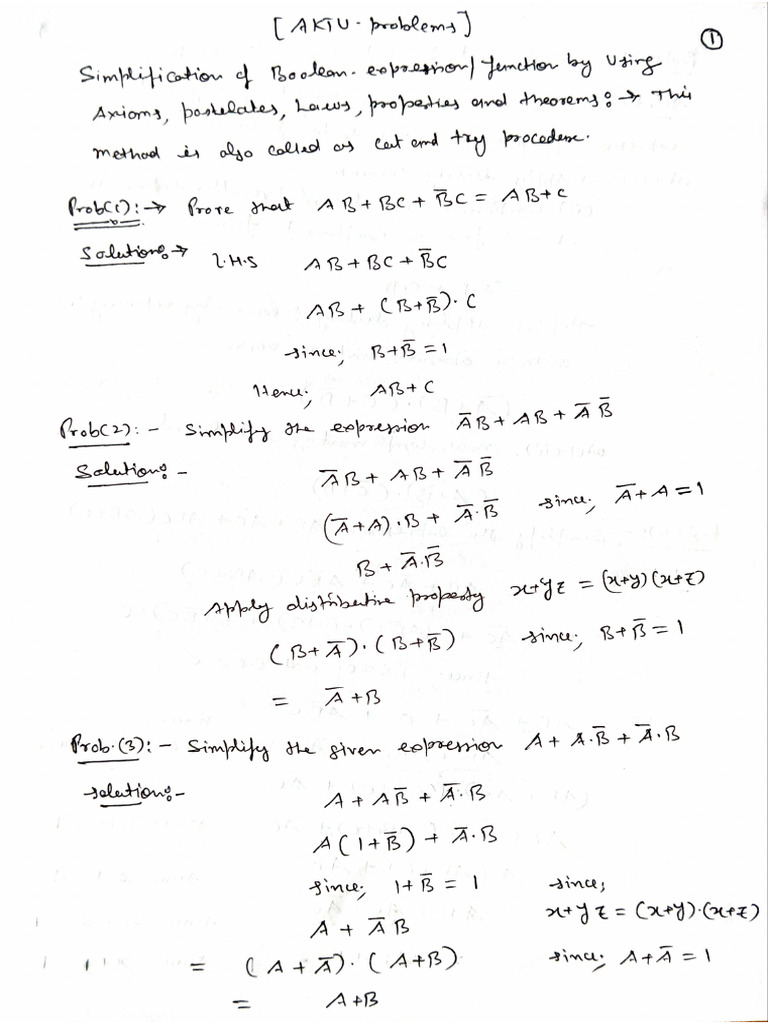 [AKTU - problems]
①
Simplification of Boolean - expression/function by Using
Axioms, postelates, Laws, properties and theorems :→ This
method is also called as cut and try procedure.
Prob(1):→ Prove that AB + BC + B̅C = AB+C
Solution:→ L.H.S AB + BC + B̅C
AB + (B+B̅)·C
since; B+B̅ = 1
Hence; AB+C
Prob(2):- Simplify the expression A̅B + AB + A̅ B̅
Solution:- A̅B + AB + A̅ B̅
(A̅+A)·B + A̅·B̅ since; A̅+A = 1
B + A̅.B̅
Apply distributive property x+yz = (x+y)(x+z)
(B+A̅)·(B+B̅) since; B+B̅ = 1
= A̅+B
Prob.(3):- Simplify the given expression A + A.B̅ + A̅.B
solution:- A + AB̅ + A̅.B
A(1+B̅) + A̅.B
since; 1+B̅ = 1 since;
A + A̅B x+yz = (x+y)·(x+z)
= (A+A̅)·(A+B) since; A+A̅ = 1
= A+B